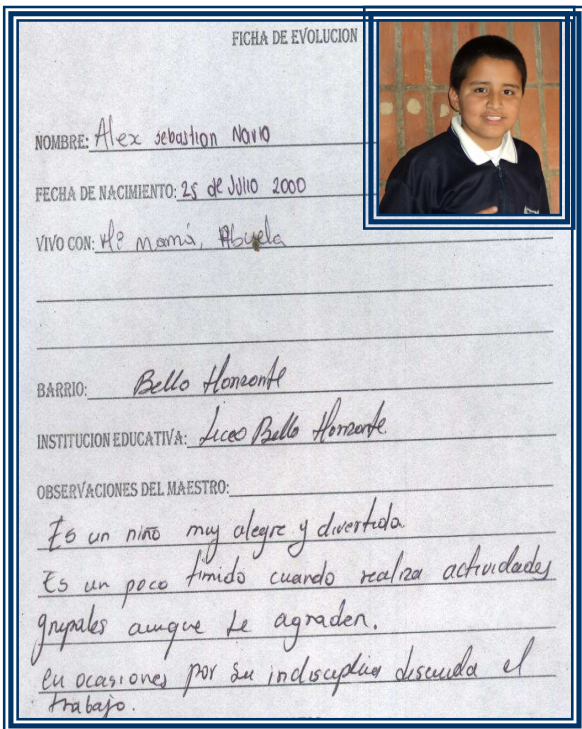 FICHA DE EVOLUCION
NOMBRE: Alex sebastian Navio
FECHA DE NACIMIENTO: 25 de Julio 2000
VIVO CON: Mi mamá, Abuela
BARRIO: Bello Horizonte
INSTITUCION EDUCATIVA: Liceo Bello Horizonte.
OBSERVACIONES DEL MAESTRO:
Es un niño muy alegre y divertido.
Es un poco timido cuando realiza actividades
grupales aunque le agraden.
en ocasiones por su indisciplina descuida el
trabajo.